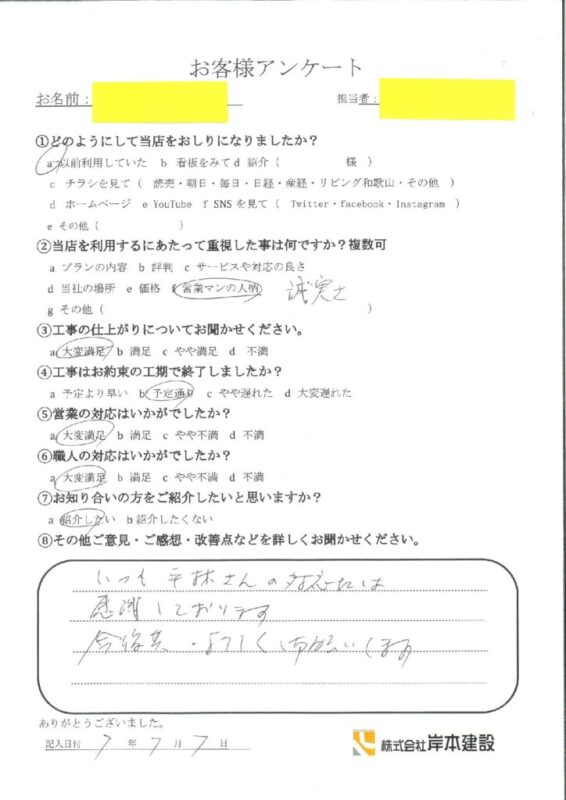 お客様アンケート
お名前：
担当者：
①どのようにして当店をおしりになりましたか？
a 以前利用していた b 看板をみて d 紹介（ 様 ）
c チラシを見て（ 読売・朝日・毎日・日経・産経・リビング和歌山・その他 ）
d ホームページ e YouTube f SNSを見て（ Twitter・facebook・Instagram ）
e その他（ ）
②当店を利用するにあたって重視した事は何ですか？複数可
a プランの内容 b 評判 c サービスや対応の良さ
d 当社の場所 e 価格 f 営業マンの人柄 誠実さ
g その他（ ）
③工事の仕上がりについてお聞かせください。
a 大変満足 b 満足 c やや満足 d 不満
④工事はお約束の工期で終了しましたか？
a 予定より早い b 予定通り c やや遅れた d 大変遅れた
⑤営業の対応はいかがでしたか？
a 大変満足 b 満足 c やや不満 d 不満
⑥職人の対応はいかがでしたか？
a 大変満足 b 満足 c やや不満 d 不満
⑦お知り合いの方をご紹介したいと思いますか？
a 紹介したい b 紹介したくない
⑧その他ご意見・ご感想・改善点などを詳しくお聞かせください。
いつも 平林さんの対応には
感謝しております
今後共・よろしくお願いします
ありがとうございました。
記入日付 7 年 7 月 7 日
株式会社 岸本建設